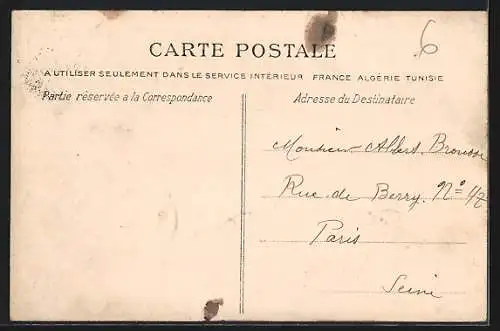 6
CARTE POSTALE
A UTILISER SEULEMENT DANS LE SERVICE INTÉRIEUR FRANCE ALGÉRIE TUNISIE
Partie réservée a la Correspondance
Adresse du Destinataire
Monsieur Albert Brousse
Rue de Berry. Nº 47
Paris
Seine